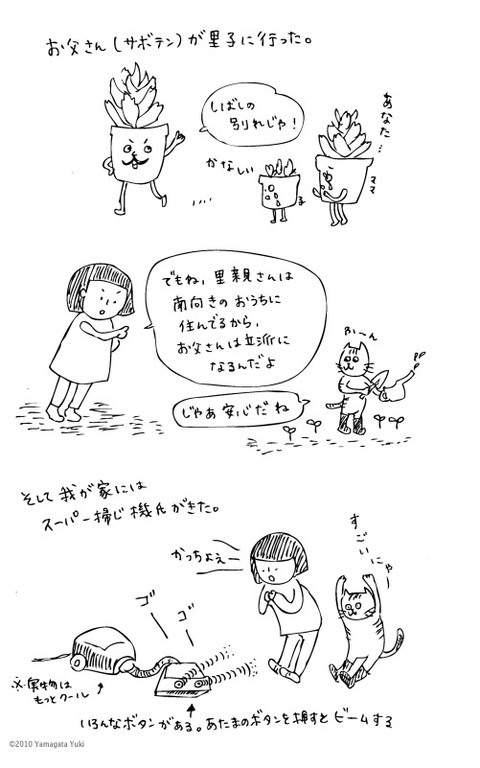 お父さん(サボテン)が里子に行った。
しばしの
別れじゃ!
あなた…
かなしい
ママ
でもね,里親さんは
南向きのおうちに
住んでるから,
お父さんは立派に
なるんだよ
じゃあ安心だね
そして我が家には
スーパー掃じ機氏がきた。
かっちょえー
すごいにゃー
ゴー
ゴー
※実物は
もっとクール
いろんなボタンがある。あたまのボタンを押すとビームする
©2010 Yamagata Yuki